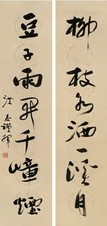 柳枝水洒一溪月
豆子雨開千嶂煙